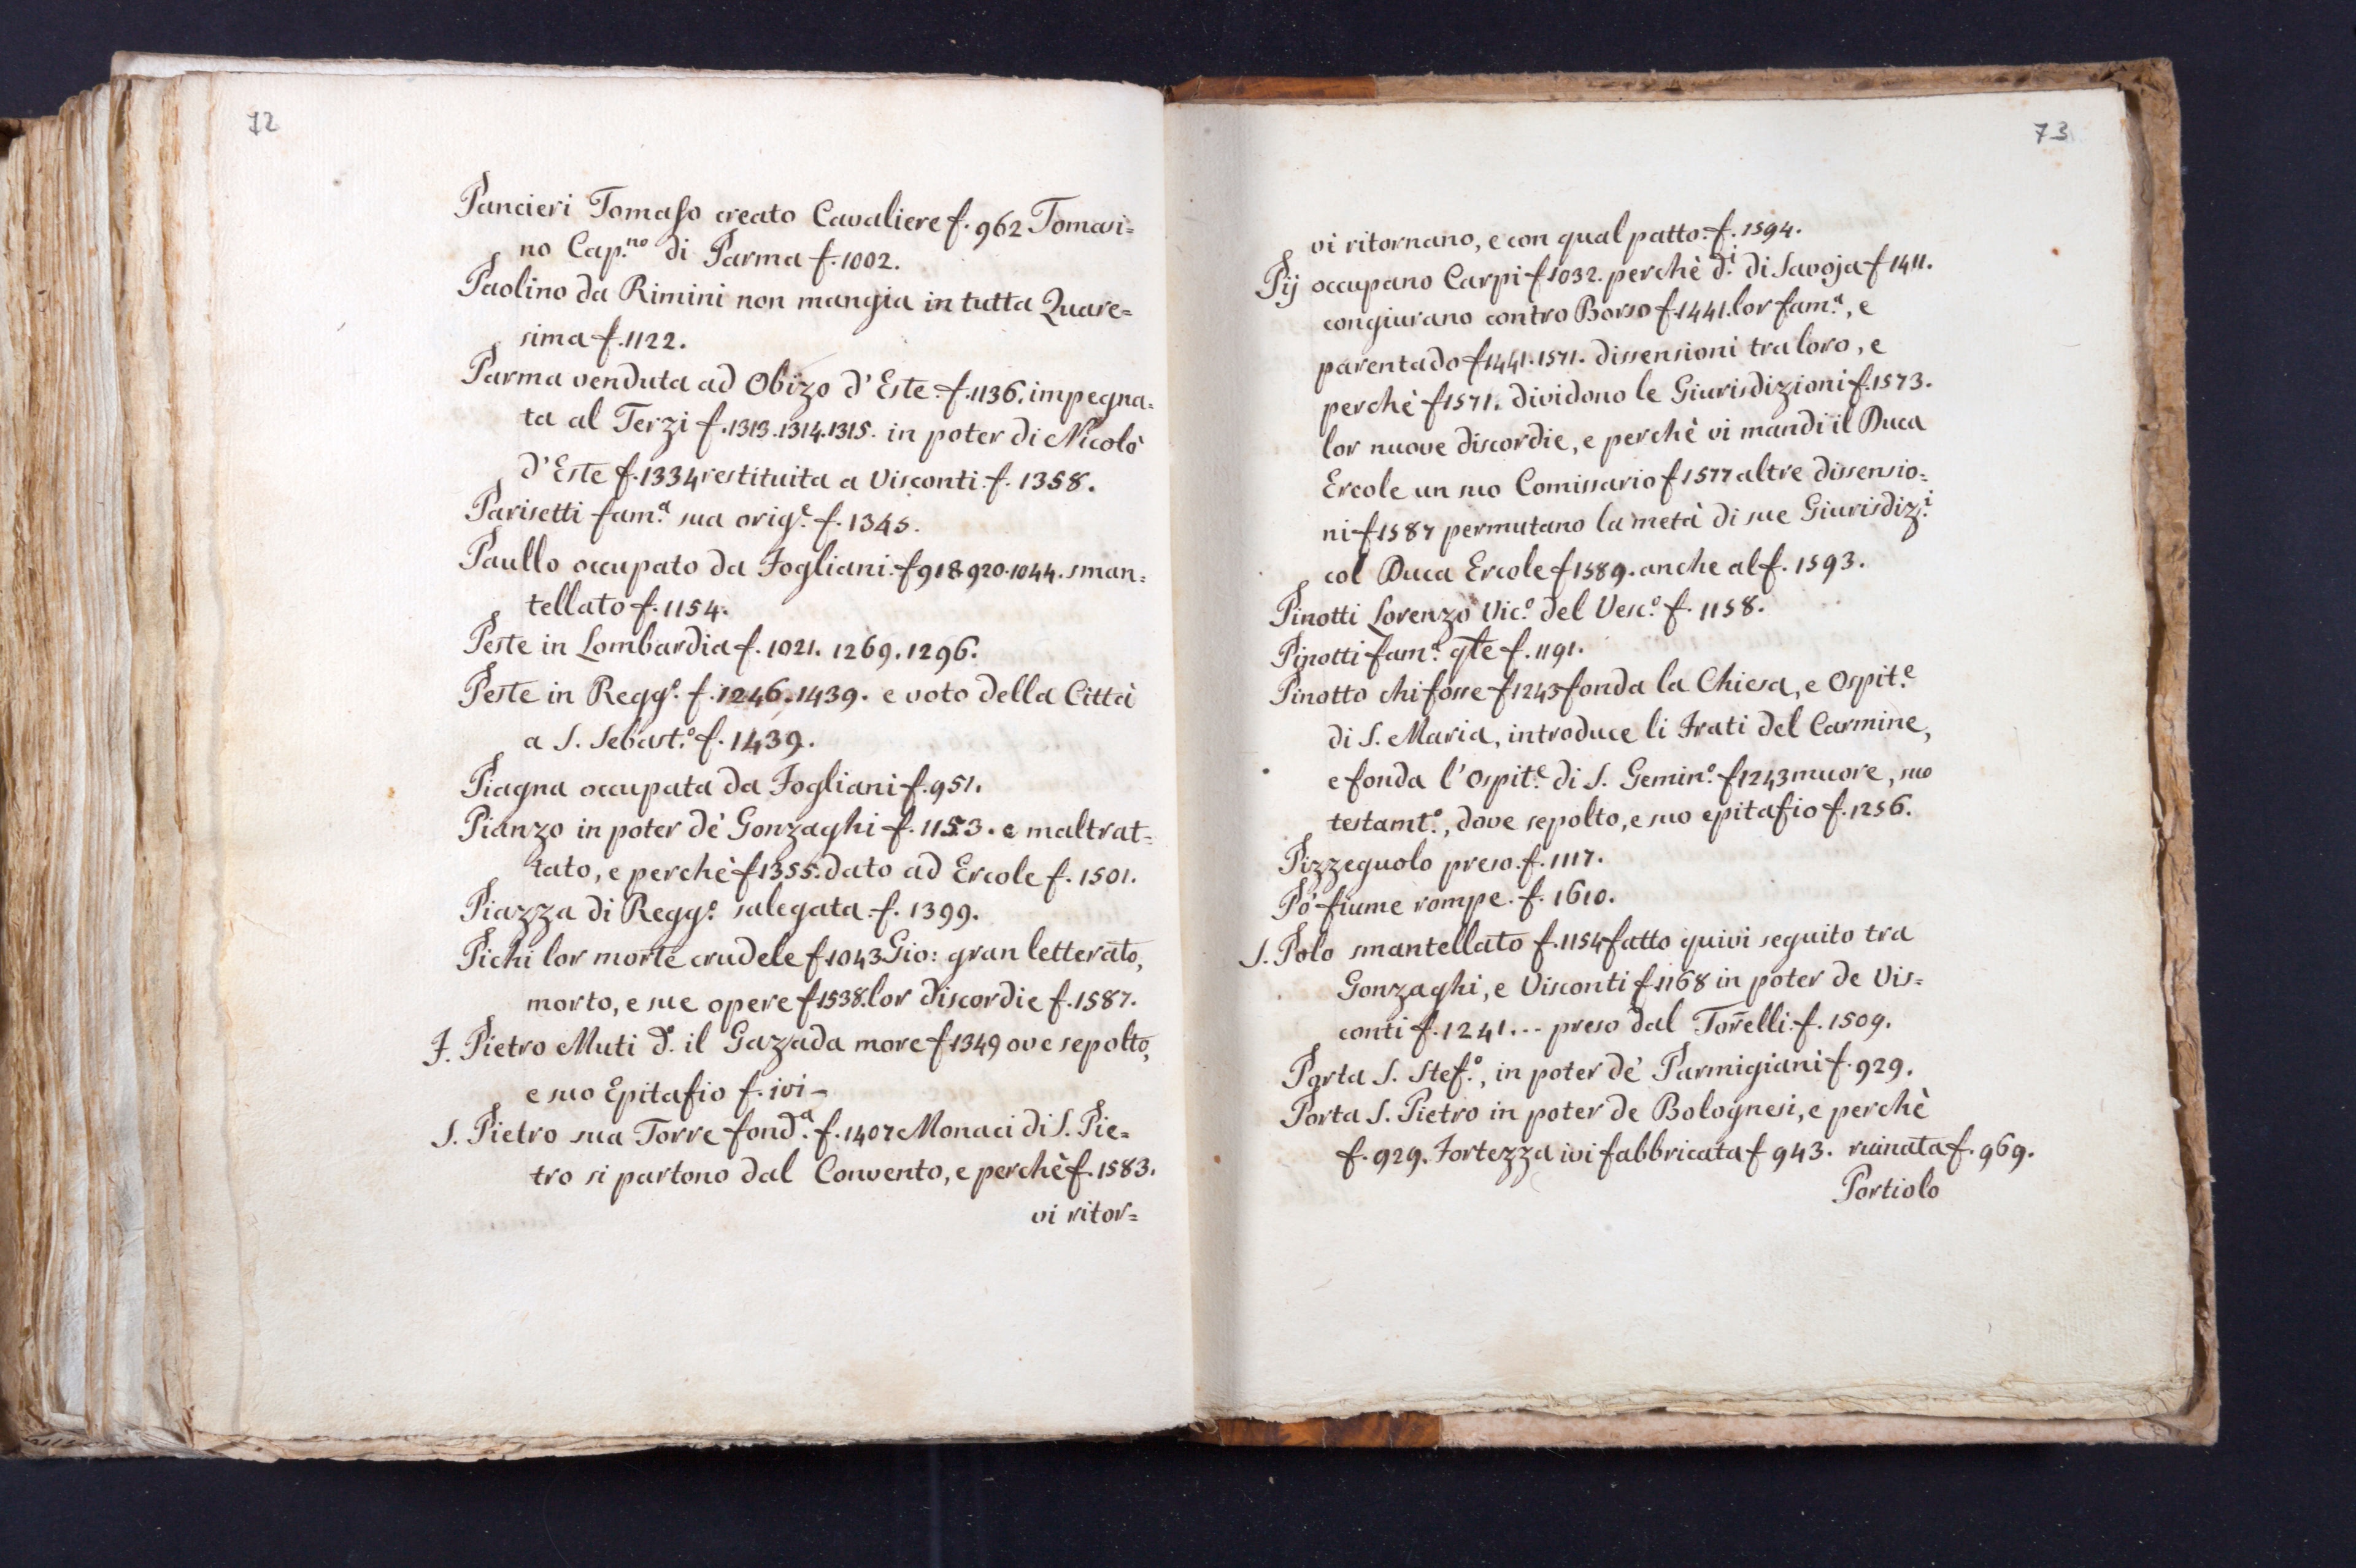 72
Pancieri Tomaso creato Cavaliere f. 962 Tomasi=
no Cap.no di Parma f. 1002.
Paolino da Rimini non mangia in tutta Quare=
sima f. 1122.
Parma venduta ad Obizo d'Este. f. 1136. impegna=
ta al Terzi f. 1313. 1314. 1315. in poter di Nicolò
d'Este f. 1334 restituita a Visconti. f. 1358.
Parisetti fam.a sua orig.e f. 1345.
Paullo occupato da Fogliani. f 918. 920. 1044. sman=
tellato f. 1154.
Peste in Lombardia f. 1021. 1269. 1296.
Peste in Regg.o f. 1246. 1439. e voto della Città
a S. Sebast.o f. 1439.
Piagna occupata da Fogliani f. 951.
Pianzo in poter de' Gonzaghi f. 1153. e maltrat=
tato, e perchè f 1355. dato ad Ercole f. 1501.
Piazza di Regg.o salegata. f. 1399.
Pichi lor morte crudele f 1043 Gio: gran letterato,
morto, e sue opere f 1538. lor discordie f. 1587.
F. Pietro Muti d.o il Gazada more f 1349 ove sepolto,
e suo Epitafio f. ivi -
S. Pietro sua Torre fond.a f. 1407 Monaci di S. Pie=
tro si partono dal Convento, e perchè f. 1583.
vi ritor=
73
vi ritornano, e con qual patto. f. 1594.
Pij occupano Carpi f 1032. perchè d.i di Savoja f 1411.
congiurano contro Borso f. 1441. lor fam.a, e
parentado f 1441. 1571. dissensioni tra loro, e
perchè f 1571. dividono le Giurisdizioni f. 1573.
lor nuove discordie, e perchè vi mandi il Duca
Ercole un suo Comissario f 1577 altre dissensio=
ni f 1587 permutano la metà di sue Giurisdiz.i
col Duca Ercole f 1589. anche al f. 1593.
Pinotti Lorenzo Vic.o del Vesc.o f. 1158.
Pinotti fam.a qle f. 1191.
Pinotto chi fosse f 1243 fonda la Chiesa, e Ospit.e
di S. Maria, introduce li Frati del Carmine,
e fonda l'Ospit.e di S. Gemin.o f 1243 muore, suo
testamt.o, dove sepolto, e suo epitafio f. 1256.
Pizzeguolo preso. f. 1117.
Pò fiume rompe. f. 1610.
S. Polo smantellato f. 1154 fatto quivi seguito tra
Gonzaghi, e Visconti f 1168 in poter de Vis=
conti f. 1241... preso dal Torelli. f. 1509.
Porta S. Stef.o, in poter de' Parmigiani f. 929.
Porta S. Pietro in poter de Bolognesi, e perchè
f. 929. Fortezza ivi fabbricata f 943. ruinata f. 969.
Portiolo